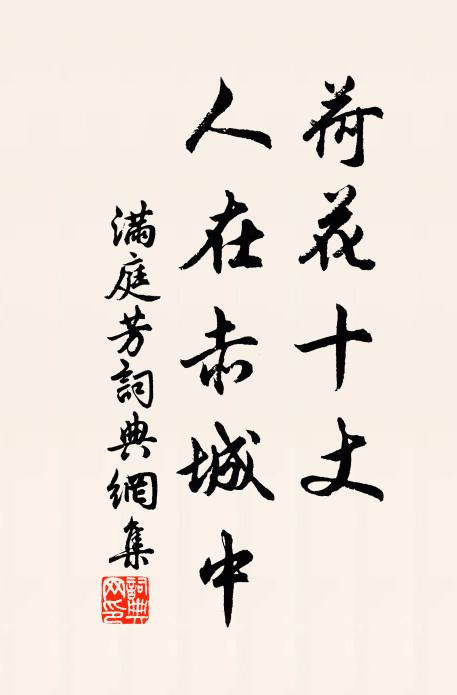 荷花十丈
人在赤城中
滿庭芳詞典網集
詞典網印